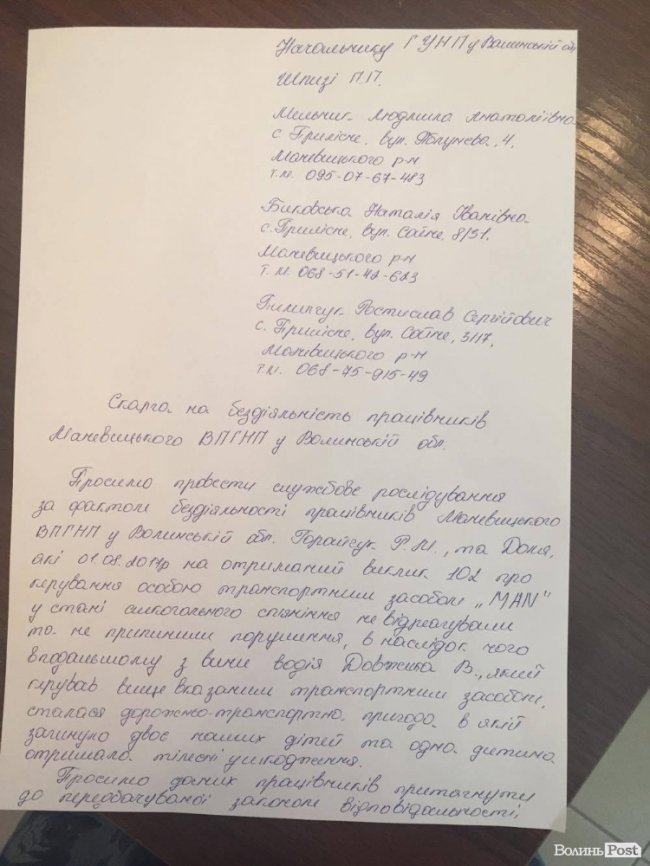 Начальнику ГУНП у Волинській обл
Шпизі П.П.
Мельник Людмила Анатоліївна
с. Прилісне, вул. 4,
Маневицького р-н
т.м. 095-07-67-483
Биковська Наталія Іванівна
с. Прилісне, вул. 8/31.
Маневицького р-н
т.м. 068-51-42-623
Пилипчук Ростислав Сергійович
с. Прилісне, вул. 3/17,
Маневицького р-н
т.м. 068-75-915-49
Скарга на бездіяльність працівників
Маневицького ВПГНП у Волинській обл.
Просимо провести службове розслідування
за фактом бездіяльності працівників Маневицького
ВПГНП у Волинській обл. Р.М., та
які 01.08.2017р на отриманий виклик 102 про
керування особою транспортним засобом „MAN"
у стані алкогольного спяніння не відреагували
та не припинили порушення, в наслідок чого
вподальшому з вини водія Довжика В., який
керував вище вказаним транспортним засобом,
сталася дорожно-транспортна пригода в якій
загинуло двоє наших дітей та одна дитина
отримала тілесні ушкодження.
Просимо даних працівників притягнути
до передбачуваної законом відповідальності.
ВолиньPost